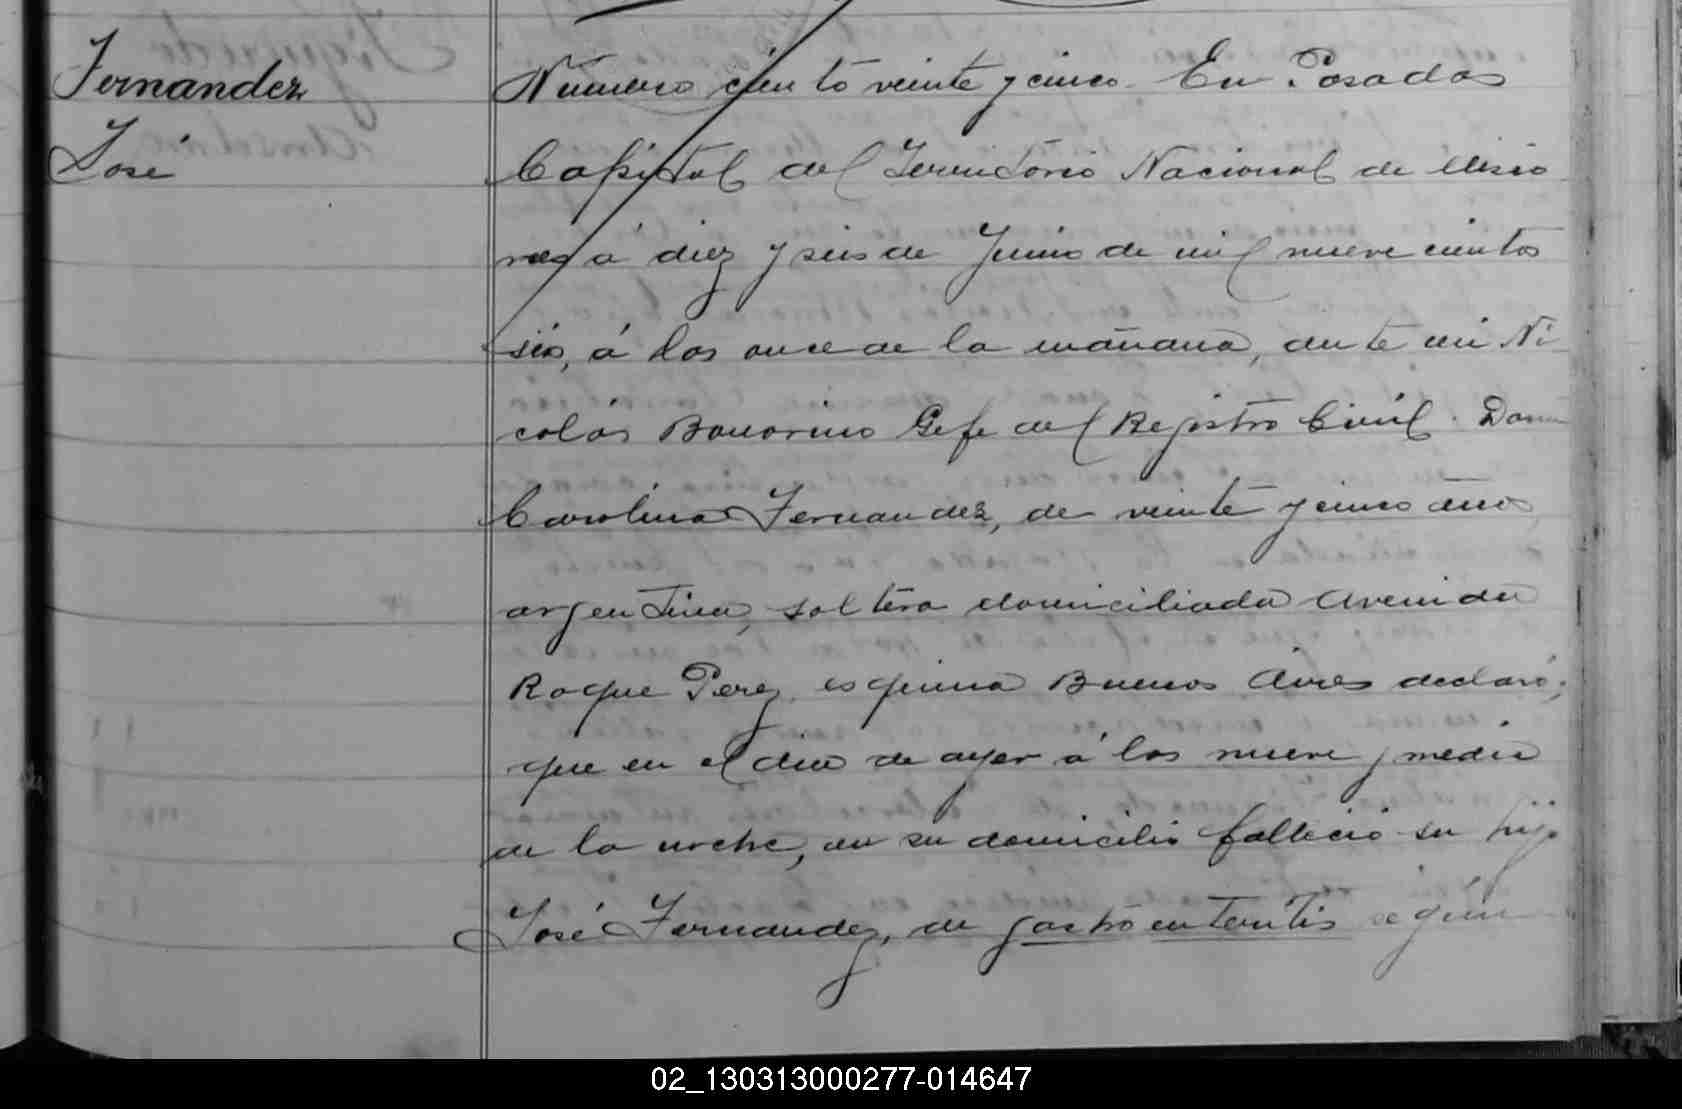 Fernandez
José
Número ciento veinte y cinco. En Posadas
Capital del Territorio Nacional de Misio
nes á diez y seis de Junio de mil nuevecientos
seis, á las once de la mañana, ante mi Ni
colás Bonorino Gefe del Registro Civil. Doña
Carolina Fernandez, de veinte y cinco años,
argentina, soltera domiciliada Avenida
Roque Perez esquina Buenos Aires declaró;
que en el dia de ayer á las nueve y media
de la noche, en su domicilio falleció su hijo
José Fernandez, de gastro enteritis segun
02_130313000277-014647